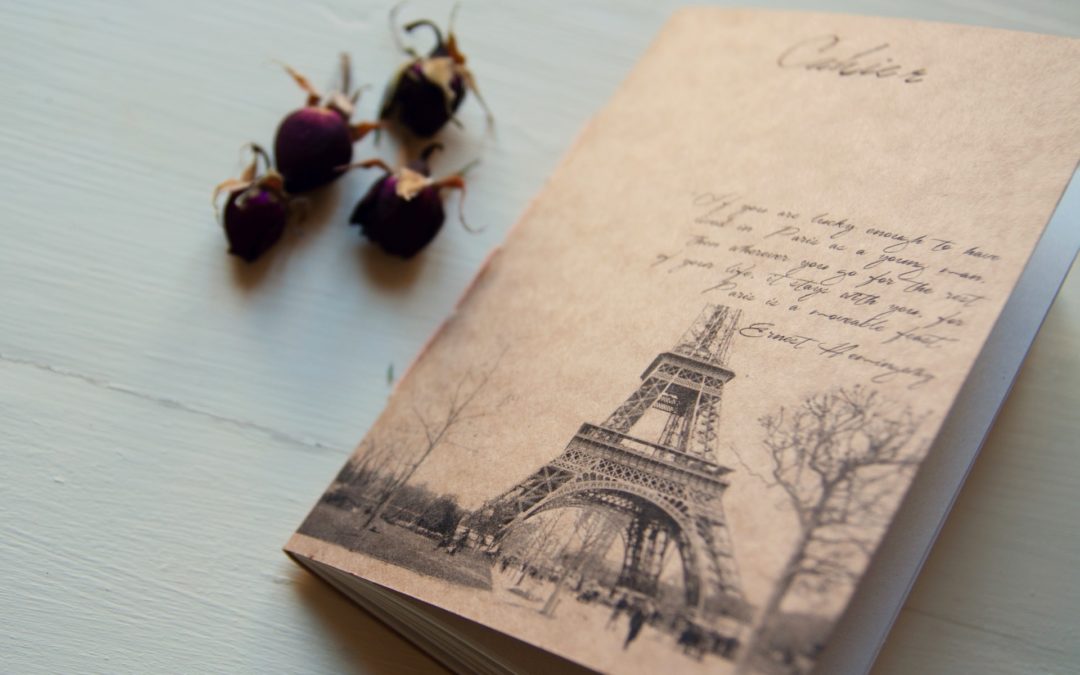 Cahier
If you are lucky enough to have
lived in Paris as a young man,
then wherever you go for the rest
of your life, it stays with you, for
Paris is a moveable feast.
Ernest Hemingway